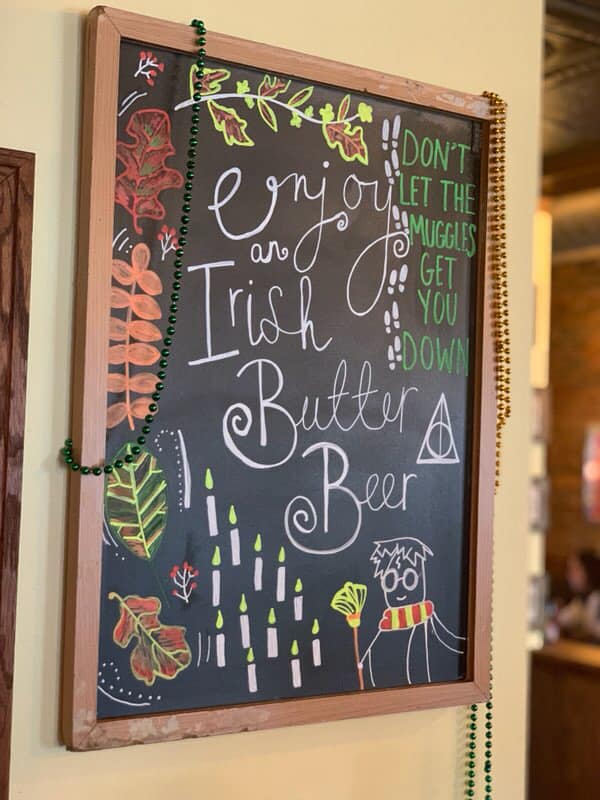 Enjoy
an
Irish
Butter
Beer
DON'T
LET THE
MUGGLES
GET
YOU
DOWN